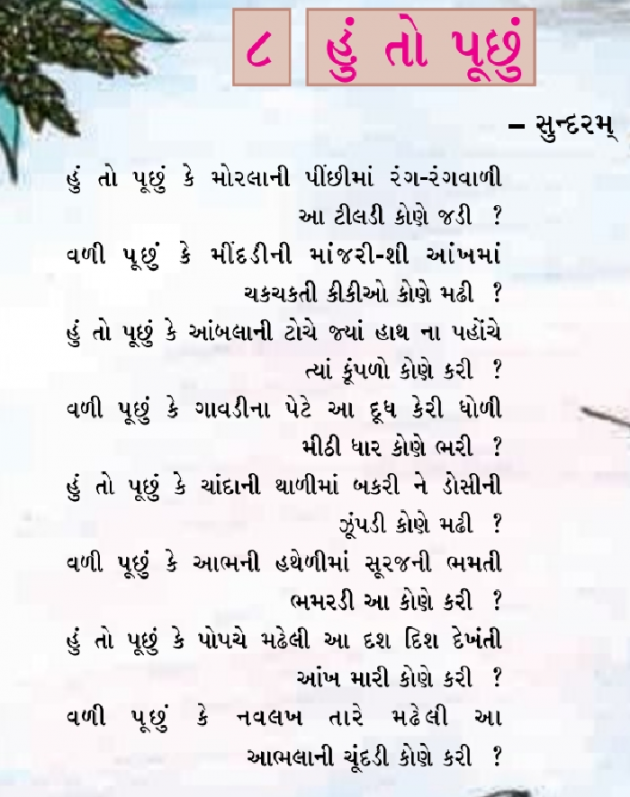 ૮ હું તો પૂછું
– સુન્દરમ્
હું તો પૂછું કે મોરલાની પીંછીમાં રંગ-રંગવાળી
આ ટીલડી કોણે જડી ?
વળી પૂછું કે મીંદડીની માંજરી-શી આંખમાં
ચકચકતી કીકીઓ કોણે મઢી ?
હું તો પૂછું કે આંબલાની ટોચે જ્યાં હાથ ના પહોંચે
ત્યાં કૂંપળો કોણે કરી ?
વળી પૂછું કે ગાવડીના પેટે આ દૂધ કેરી ધોળી
મીઠી ધાર કોણે ભરી ?
હું તો પૂછું કે ચાંદાની થાળીમાં બકરી ને ડોસીની
ઝૂંપડી કોણે મઢી ?
વળી પૂછું કે આભની હથેળીમાં સૂરજની ભમતી
ભમરડી આ કોણે કરી ?
હું તો પૂછું કે પોપચે મઢેલી આ દશ દિશ દેખંતી
આંખ મારી કોણે કરી ?
વળી પૂછું કે નવલખ તારે મઢેલી આ
આભલાની ચૂંદડી કોણે કરી ?